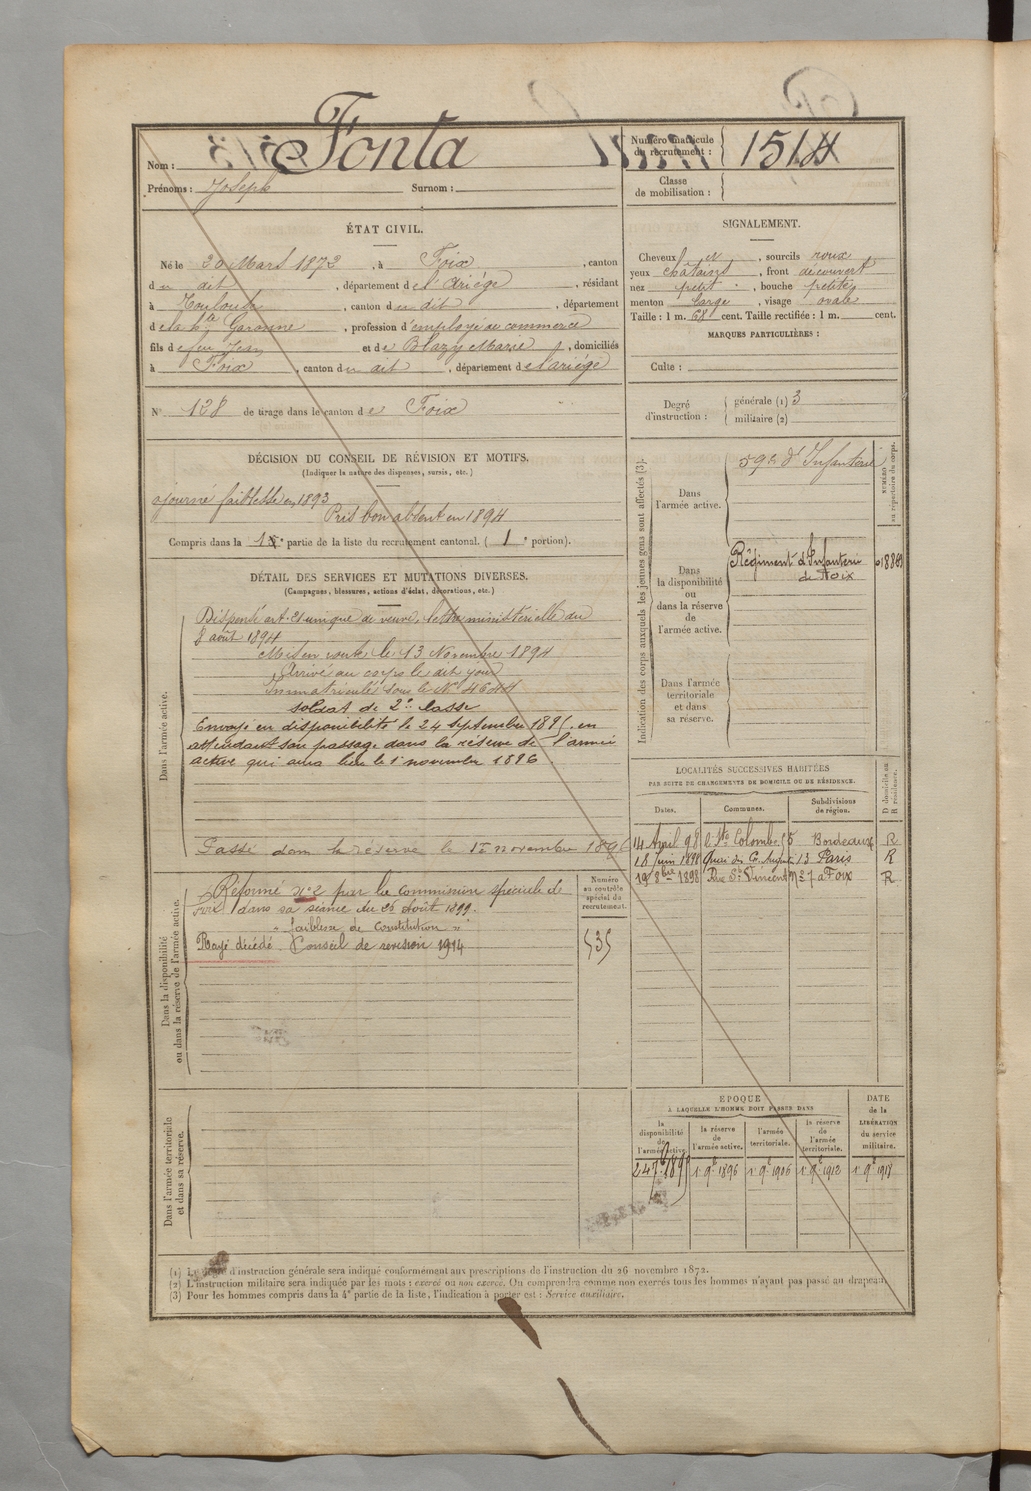 Nom : Fonta
Prénoms : Joseph Surnom :
Numéro matricule du recrutement : 1514
Classe de mobilisation :
ÉTAT CIVIL.
Né le 20 Mars 1872, à Foix, canton
du dit, département de l'Ariége, résidant
à Toulouse, canton du dit, département
de la hte Garonne, profession d'employé de commerce
fils de feu Jean et de Blazy Marie, domiciliés
à Foix, canton du dit, département de l'ariége
N° 128 de tirage dans le canton de Foix
SIGNALEMENT.
Cheveux et, sourcils roux
yeux châtains, front découvert
nez petit, bouche petite
menton large, visage ovale
Taille : 1 m. 68 cent. Taille rectifiée : 1 m. cent.
MARQUES PARTICULIÈRES :
Culte :
Degré d'instruction : générale (1) 3
militaire (2)
DÉCISION DU CONSEIL DE RÉVISION ET MOTIFS.
(Indiquer la nature des dispenses, sursis, etc.)
ajourné faiblesse en 1893
Pris bon absent en 1894
Compris dans la 1e partie de la liste du recrutement cantonal. (1e portion).
DÉTAIL DES SERVICES ET MUTATIONS DIVERSES.
(Campagnes, blessures, actions d'éclat, décorations, etc.)
Dans l'armée active.
Dispensé art. 21 unique de veuve, lettre ministérielle du
8 août 1894
Mis en route le 13 Novembre 1894
Arrivé au corps le dit jour
Immatriculé sous le N° 4644
soldat de 2e classe
Envoyé en disponibilité le 24 septembre 1895 en
attendant son passage dans la réserve de l'armée
active qui aura lieu le 1er novembre 1896.
Passé dans la réserve le 1er novembre 1896
Dans la disponibilité ou dans la réserve de l'armée active.
Réformé n° 2 par la Commission spéciale de
Foix dans sa séance du 26 Août 1899.
"faiblesse de Constitution"
Rayé décédé. Conseil de revision 1914
Numéro au contrôle spécial du recrutement.
535
Dans l'armée territoriale et dans sa réserve.
Indication des corps auxquels les jeunes gens sont affectés (3).
NUMÉRO au répertoire du corps.
Dans l'armée active.
59e d'Infanterie
Dans la disponibilité ou dans la réserve de l'armée active.
Régiment d'Infanterie
de Foix
Dans l'armée territoriale et dans sa réserve.
LOCALITÉS SUCCESSIVES HABITÉES
PAR SUITE DE CHANGEMENTS DE DOMICILE OU DE RÉSIDENCE.
Dates. Communes. Subdivisions de région. D domicile ou R résidence.
14 April 98 Ste Colombe 5 Bordeaux R
18 Juin 1898 Quai des Gds Augustins 13 Paris R
19 8bre 1898 Rue St Vincent N° 7 a Foix R
ÉPOQUE
À LAQUELLE L'HOMME DOIT PASSER DANS
la disponibilité de l'armée active. la réserve de l'armée active. l'armée territoriale. la réserve de l'armée territoriale. DATE de la LIBÉRATION du service militaire.
24 7bre 1895 1er 9bre 1896 1er 9bre 1906 1er 9bre 1912 1er 9bre 1918
(1) Le degré d'instruction générale sera indiqué conformément aux prescriptions de l'instruction du 26 novembre 1872.
(2) L'instruction militaire sera indiquée par les mots : exercé ou non exercé. On comprendra comme non exercés tous les hommes n'ayant pas passé au drapeau.
(3) Pour les hommes compris dans la 4e partie de la liste, l'indication à porter est : Service auxiliaire.